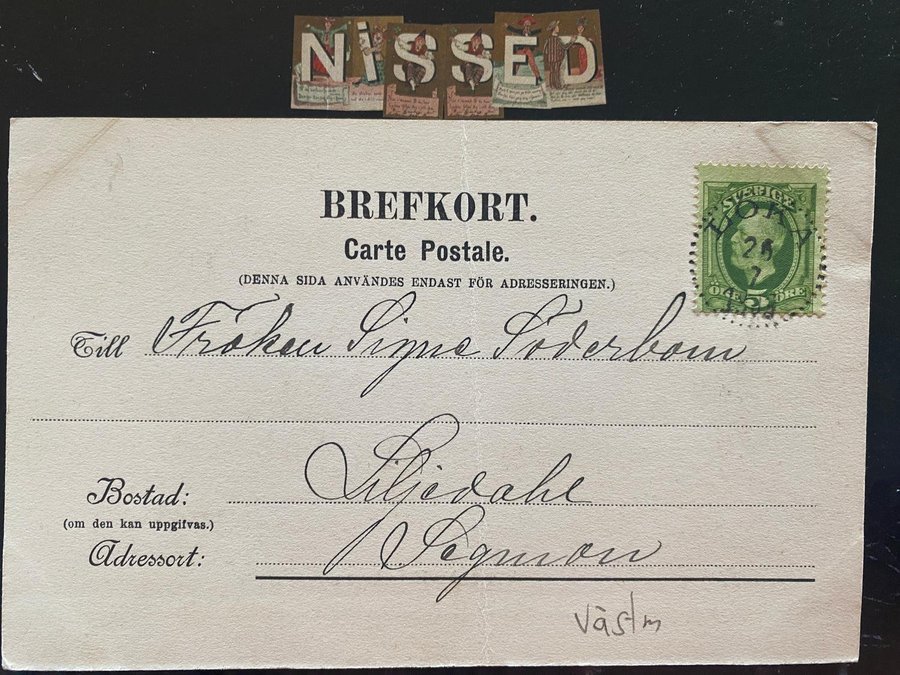 NISSED
BREFKORT.
Carte Postale.
(DENNA SIDA ANVÄNDES ENDAST FÖR ADRESSERINGEN.)
SVERIGE
LOKA
26
2
ÖRE 5 ÖRE
Till Fröken Signe Söderbom
Liljedahl
Bostad:
(om den kan uppgifvas.)
Adressort: Segmon
Västm